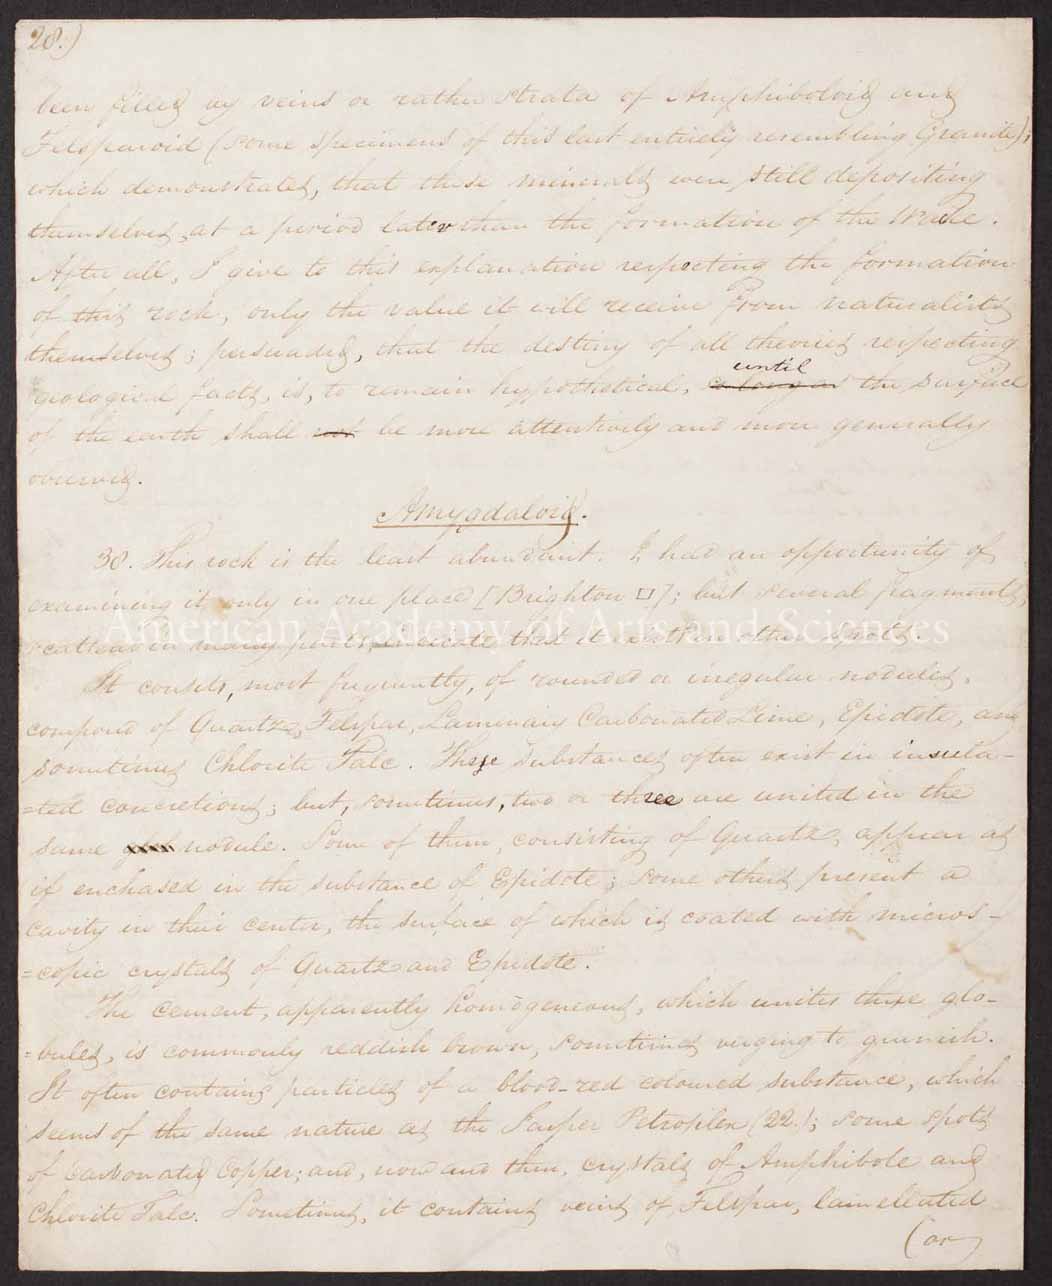 28.)
been filled by veins or rather strata of Amphiboloid and
Felsparoid (some specimens of this last entirely resembling Granite);
which demonstrates, that these minerals were still depositing
themselves, at a period later than the formation of the Wacke.
After all, I give to this explanation respecting the formation
of this rock, only the value it will receive from naturalists
themselves; persuaded, that the destiny of all theories respecting
until
geological facts, is, to remain hypothetical, as long as the surface
of the earth shall not be more attentively and more generally
observed.
Amygdaloid.
38. This rock is the least abundant. I, had an opportunity of
examining it only in one place [Brighton □]; but several fragments,
scattered in many parts, indicate that it exists in other spots.
American Academy of Arts and Sciences
It consists, most frequently, of rounded or irregular nodules,
composed of Quartz, Felspar, Laminary Carbonated Lime, Epidote, and
sometimes Chlorite Talc. These substances often exist in insula-
=ted concretions; but, sometimes, two or three are united in the
same nodule. Some of them, consisting of Quartz, appear as
if enchased in the substance of Epidote; some others present a
cavity in their center, the surface of which is coated with micros-
=copic crystals of Quartz and Epidote.
The cement, apparently homogeneous, which unites these glo-
=bules, is commonly reddish brown, sometimes verging to greenish.
It often contains particles of a blood-red coloured substance, which
seems of the same nature as the Jasper Petroplex (22.); some spots
of Carbonated Copper; and, now and then, crystals of Amphibole and
Chlorite Talc. Sometimes, it contains veins of Felspar, lamellated
(or